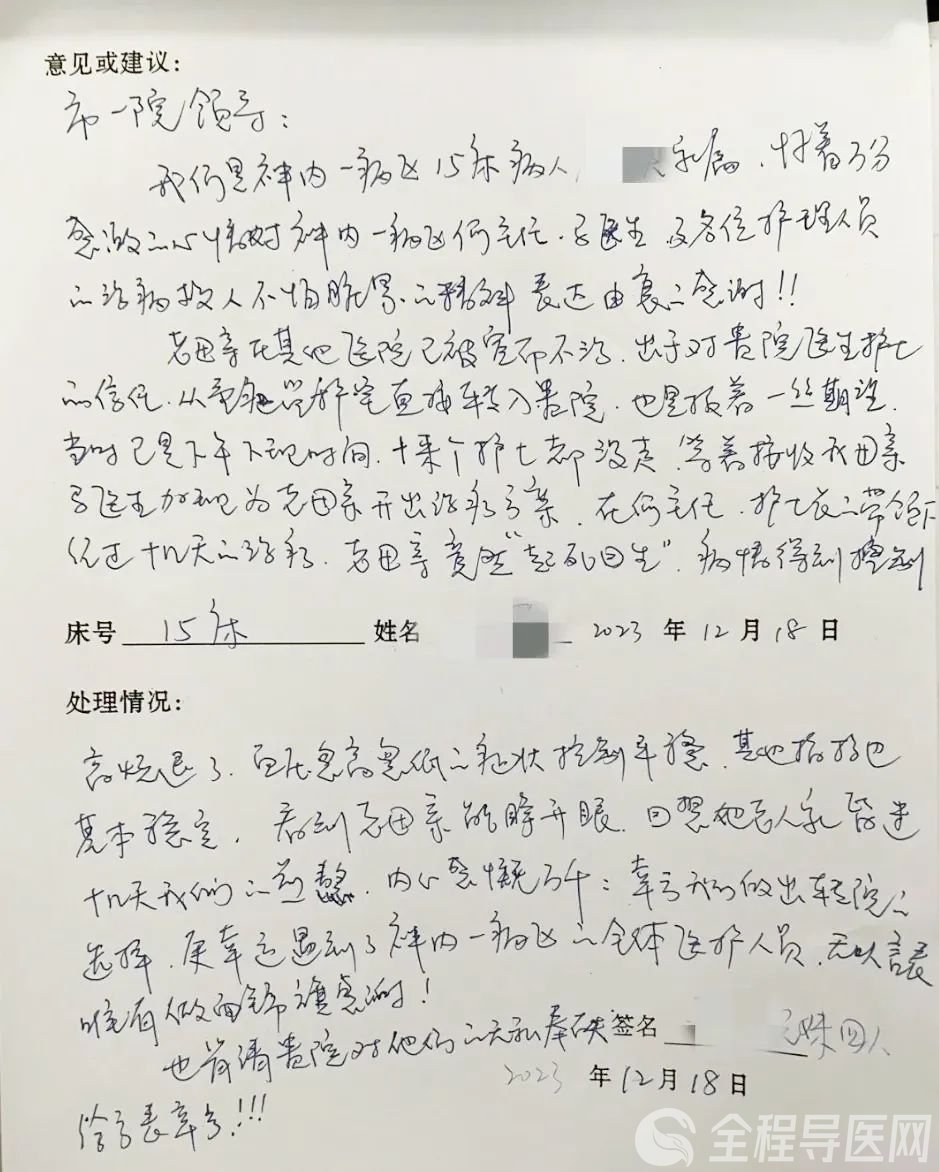 意见或建议：
市一院领导：
我们是神内一病区15床病人 家属，怀着万分
感激的心情对神内一病区何主任、马医生及各位护理人员
的治病救人不怕脏累、的精神表达由衷的感谢！！
老母亲在其他医院已被宣布不治，出于对贵院医生护士
的信任，从重症监护室直接转入贵院，也是报着一丝期望，
当时已是下午下班时间，十来个护士都没走，等着接收我母亲
马医生加班为老母亲开出治疗方案，在何主任、护士长的带领下
经过十几天的治疗，老母亲竟然“起死回生”，病情得到控制
床号 15床 姓名 2023 年 12 月 18 日
处理情况：
高烧退了，血压忽高忽低的症状控制平稳，其他指标也
基本稳定，看到老母亲能睁开眼，回想她老人家昏迷
十几天我们的煎熬，内心感慨万千：幸亏我们做出转院的
选择，更幸运遇到了神内一病区的全体医护人员，无以言表
唯有做面锦旗感谢！
也肯请贵院对他们的无私奉献 签名 兄妹四人
2023 年 12 月 18 日
给予表彰！！！
全程导医网